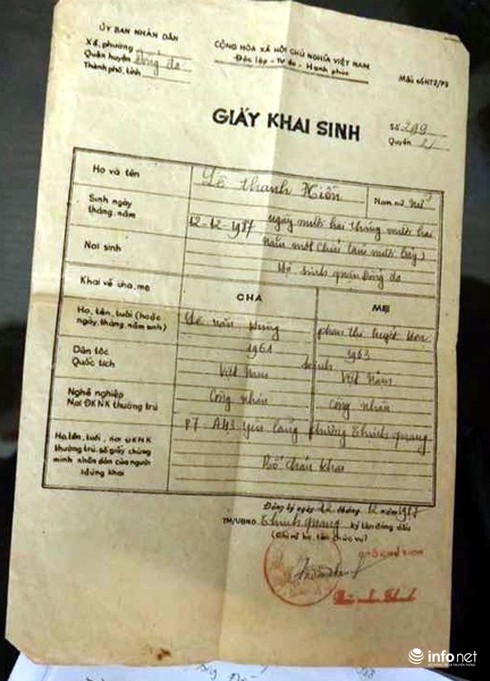 ỦY BAN NHÂN DÂN
Xã, phường
Quận huyện Đống đa
Thành phố, tỉnh
CỘNG HÒA XÃ HỘI CHỦ NGHĨA VIỆT NAM
Độc lập - Tự do - Hạnh phúc
Mẫu số HT2/P3
GIẤY KHAI SINH
Số 299
Quyển 2
Họ và tên
Lê thanh Hiền
Nam nữ Nữ
Sinh ngày
tháng, năm
12-12-1987 ngày mười hai tháng mười hai
năm một chín tám mười bảy)
Nơi sinh
Hộ sinh quận Đống đa
Khai về cha, mẹ
CHA
MẸ
Họ, tên, tuổi (hoặc
ngày, tháng, năm sinh)
Lê văn Hùng
1961
phan thị tuyết
1963
Dân tộc
Quốc tịch
kinh
Việt Nam
Việt Nam
Nghề nghiệp
Nơi ĐKNK thường trú
Công nhân
công nhân
P7 A43 Yên lãng phường Thịnh quang
Họ, tên, tuổi, nơi ĐKNK
thường trú, số giấy chứng
minh nhân dân của người
đứng khai
Bố cháu khai
Đăng ký ngày 12 tháng 12 năm 1987
TM/UBND Thịnh quang ký tên đóng dấu
(Ghi rõ họ, tên chức vụ)
infonet